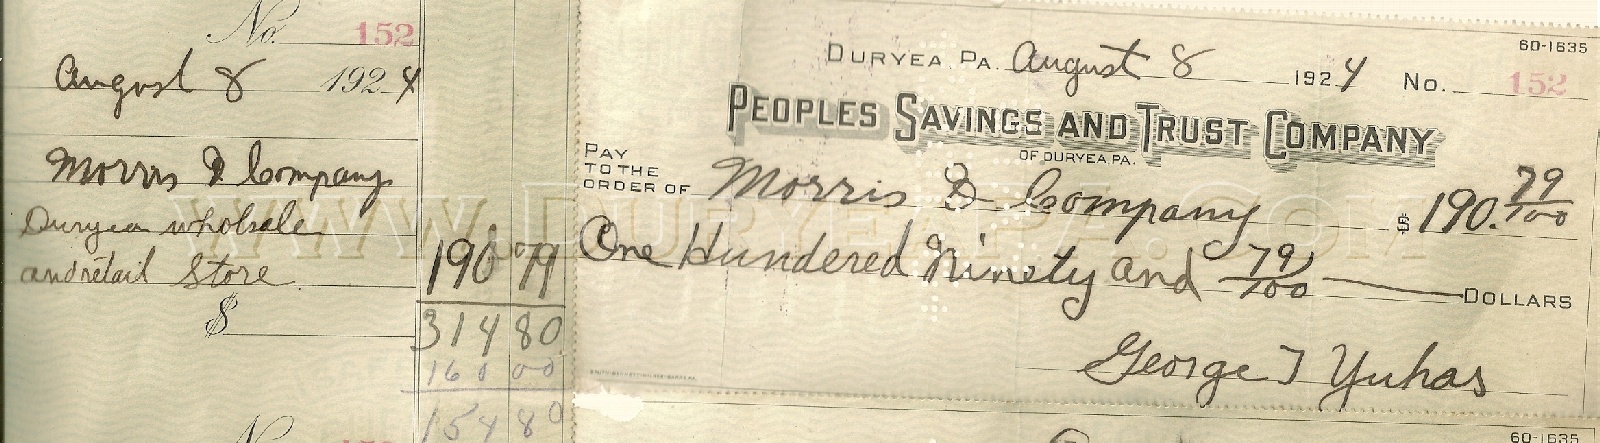 No. 152
August 8 1924
Morris & Company
Duryea wholesale
and retail Store
$
190 79
314 80
160 00
154 80
No.
60-1635
DURYEA, PA. August 8 1924 No. 152
PEOPLES SAVINGS AND TRUST COMPANY
OF DURYEA, PA.
PAY
TO THE
ORDER OF Morris & Company $190.79/100
One Hundered Ninety and 79/100 DOLLARS
George J Yuhas
60-1635
WWW.DURYEAPA.COM